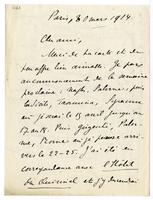 Paris, 30 mars 1914
Cher ami,
Merci de ta carte et de
ton offre bien aimable. Je pars
au commencement de la semaine
prochaine : Naples, Palerme, puis
la Sicile, Taormina, Syracuse,
où j'irai le 15 avril jusqu'au
17 au 18. Puis Girgenti, Paler-
me, Rome où je pense arri-
ver le 22-25. J'ai été en
correspondance avec l'Hôtel
du Quirinal et j'y descendrai